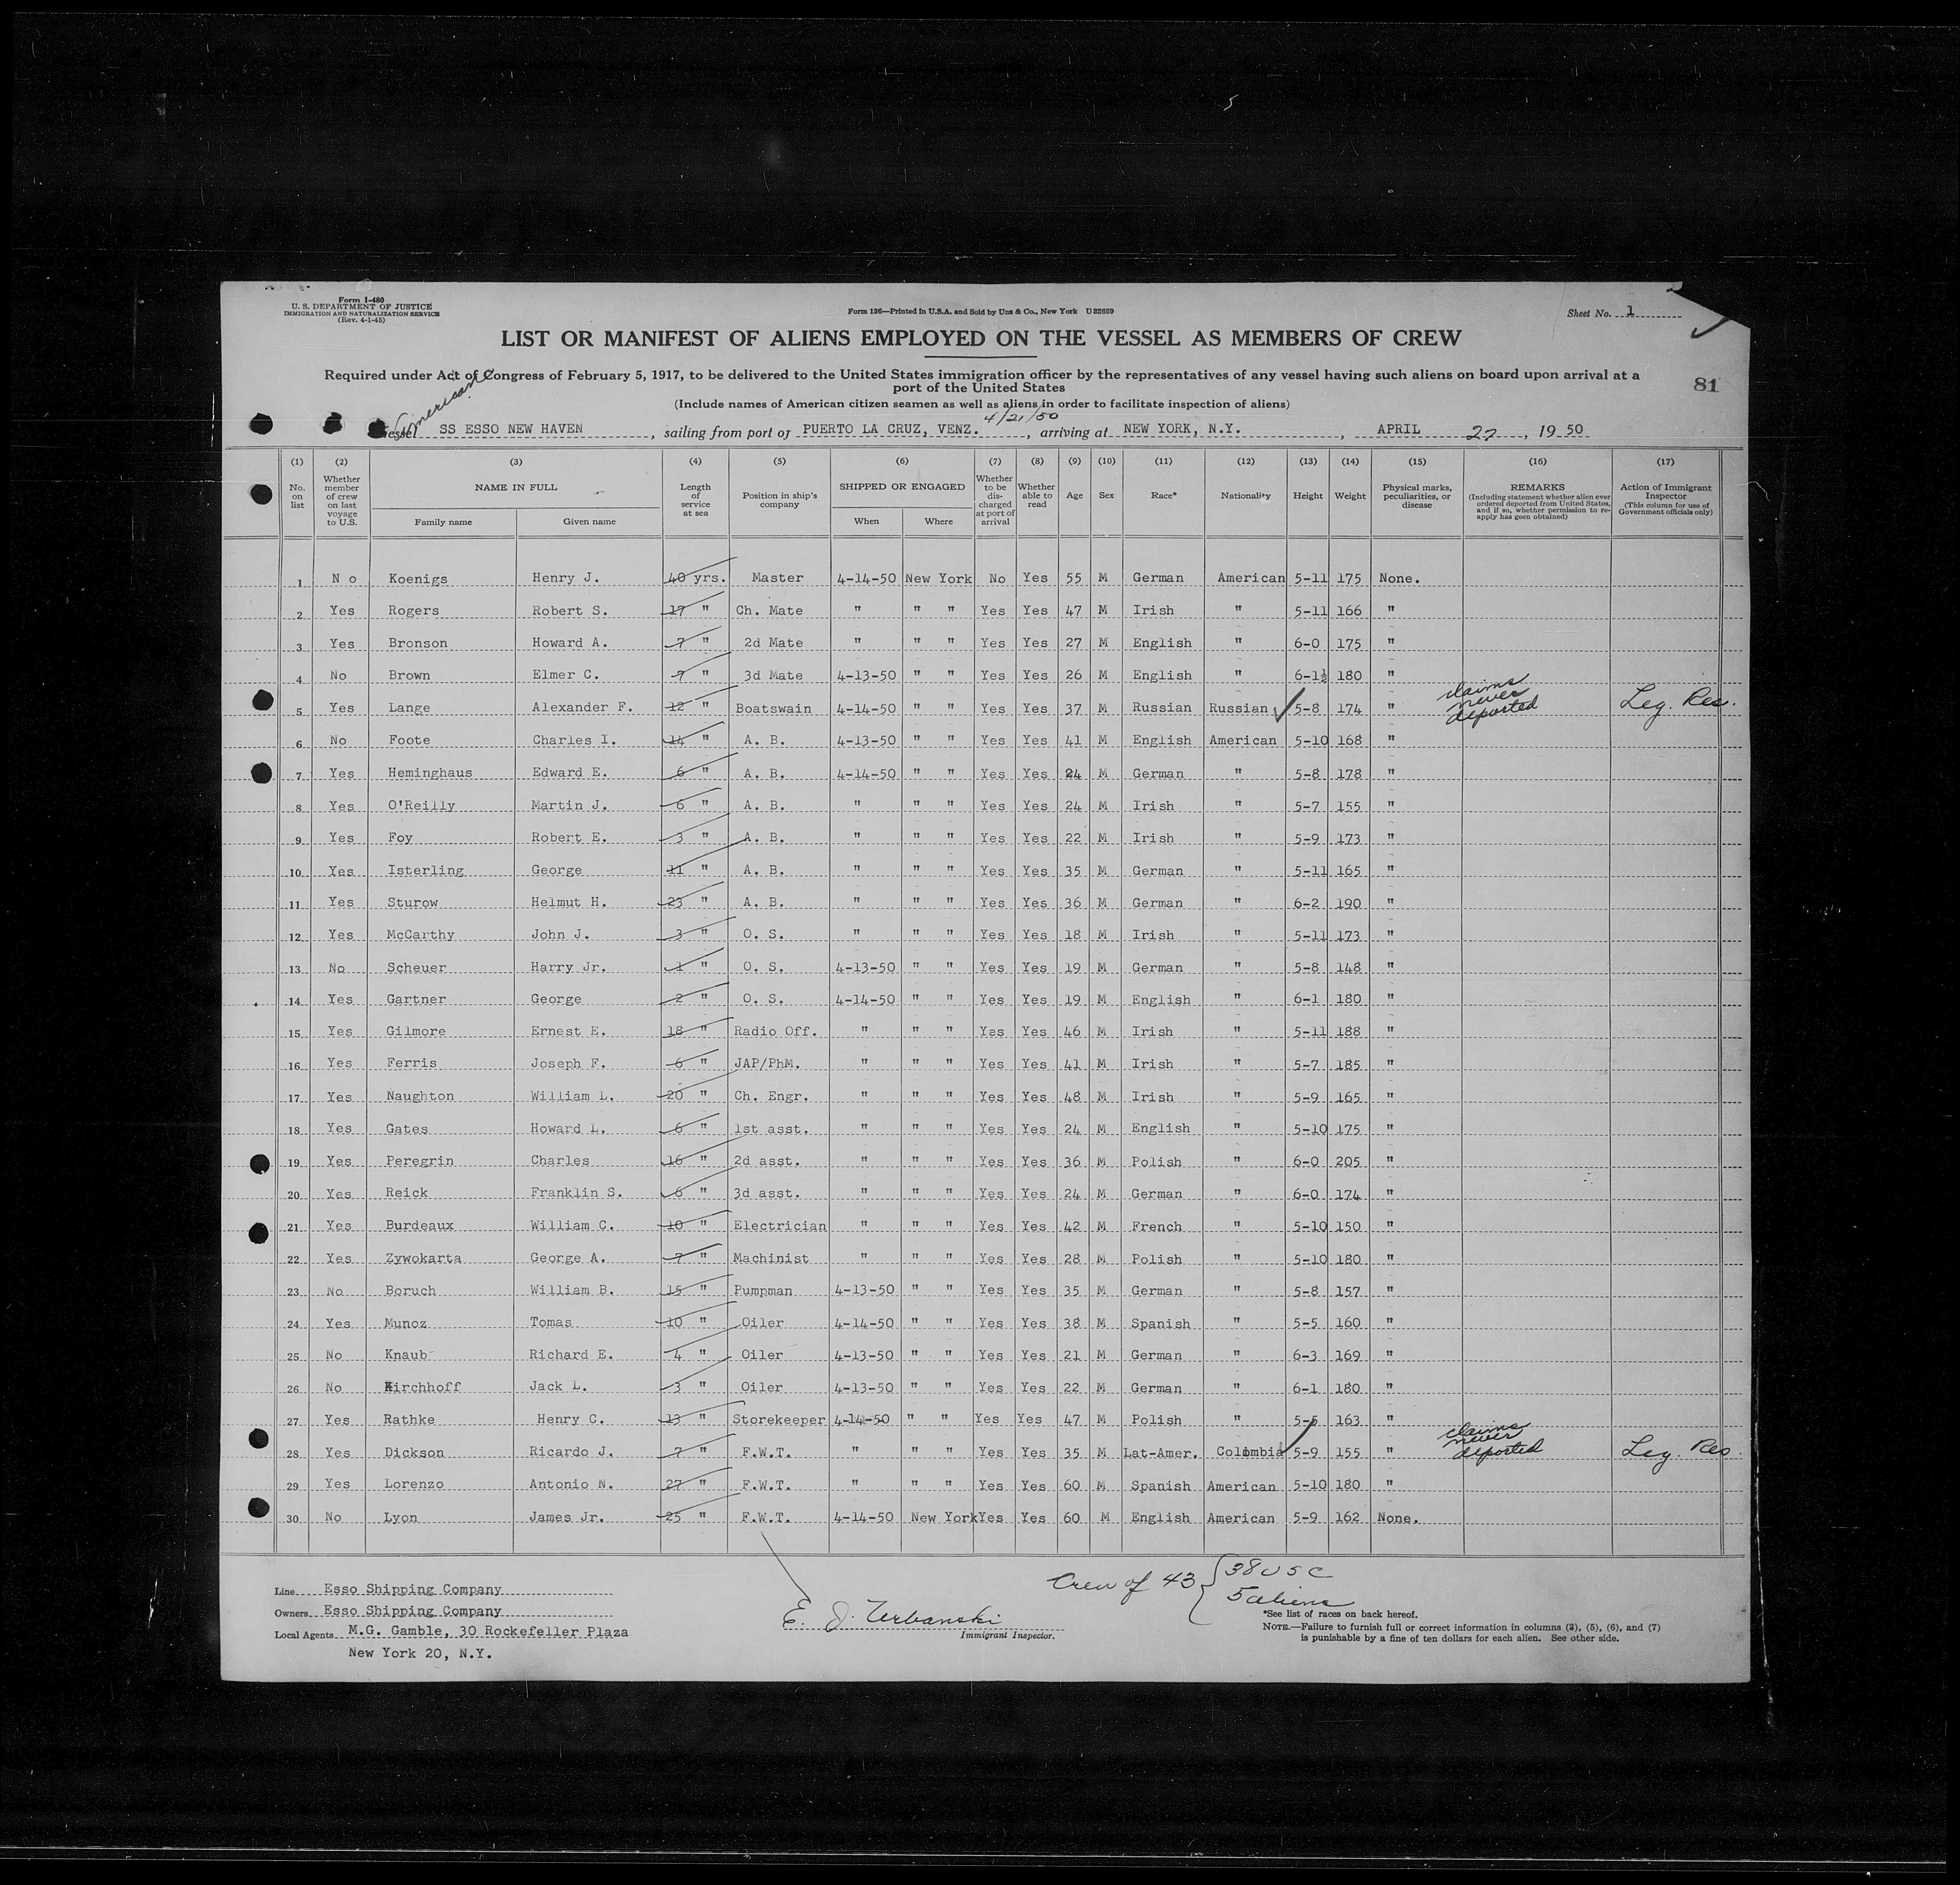 Form I-480
U. S. DEPARTMENT OF JUSTICE
IMMIGRATION AND NATURALIZATION SERVICE
(Rev. 4-1-45)
Form 136—Printed in U.S.A. and Sold by Unz & Co., New York U 32659
Sheet No. 1
LIST OR MANIFEST OF ALIENS EMPLOYED ON THE VESSEL AS MEMBERS OF CREW
Required under Act of Congress of February 5, 1917, to be delivered to the United States immigration officer by the representatives of any vessel having such aliens on board upon arrival at a
port of the United States
81
(Include names of American citizen seamen as well as aliens in order to facilitate inspection of aliens)
American
4/21/50
Vessel SS ESSO NEW HAVEN, sailing from port of PUERTO LA CRUZ, VENZ., arriving at NEW YORK, N.Y., APRIL 27, 19 50
(1) (2) (3) (4) (5) (6) (7) (8) (9) (10) (11) (12) (13) (14) (15) (16) (17)
No. on list
Whether member of crew on last voyage to U.S.
NAME IN FULL
Family name Given name
Length of service at sea
Position in ship's company
SHIPPED OR ENGAGED
When Where
Whether to be discharged at port of arrival
Whether able to read
Age Sex Race* Nationality Height Weight
Physical marks, peculiarities, or disease
REMARKS
(Including statement whether alien ever ordered deported from United States, and if so, whether permission to reapply has geen obtained)
Action of Immigrant Inspector
(This column for use of Government officials only)
1 N o Koenigs Henry J. 40 yrs. Master 4-14-50 New York No Yes 55 M German American 5-11 175 None.
2 Yes Rogers Robert S. 17 " Ch. Mate " " " Yes Yes 47 M Irish " 5-11 166 "
3 Yes Bronson Howard A. 7 " 2d Mate " " " Yes Yes 27 M English " 6-0 175 "
4 No Brown Elmer C. 7 " 3d Mate 4-13-50 " " Yes Yes 26 M English " 6-1½ 180 "
5 Yes Lange Alexander F. 12 " Boatswain 4-14-50 " " Yes Yes 37 M Russian Russian 5-8 174 " claims never deported Leg. Res.
6 No Foote Charles I. 14 " A. B. 4-13-50 " " Yes Yes 41 M English American 5-10 168 "
7 Yes Heminghaus Edward E. 6 " A. B. 4-14-50 " " Yes Yes 24 M German " 5-8 178 "
8 Yes O'Reilly Martin J. 6 " A. B. " " " Yes Yes 24 M Irish " 5-7 155 "
9 Yes Foy Robert E. 3 " A. B. " " " Yes Yes 22 M Irish " 5-9 173 "
10 Yes Isterling George 11 " A. B. " " " Yes Yes 35 M German " 5-11 165 "
11 Yes Sturow Helmut H. 23 " A. B. " " " Yes Yes 36 M German " 6-2 190 "
12 Yes McCarthy John J. 3 " O. S. " " " Yes Yes 18 M Irish " 5-11 173 "
13 No Scheuer Harry Jr. 1 " O. S. 4-13-50 " " Yes Yes 19 M German " 5-8 148 "
14 Yes Gartner George 2 " O. S. 4-14-50 " " Yes Yes 19 M English " 6-1 180 "
15 Yes Gilmore Ernest E. 18 " Radio Off. " " " Yes Yes 46 M Irish " 5-11 188 "
16 Yes Ferris Joseph F. 6 " JAP/PhM. " " " Yes Yes 41 M Irish " 5-7 185 "
17 Yes Naughton William L. 20 " Ch. Engr. " " " Yes Yes 48 M Irish " 5-9 165 "
18 Yes Gates Howard L. 6 " 1st asst. " " " Yes Yes 24 M English " 5-10 175 "
19 Yes Peregrin Charles 16 " 2d asst. " " " Yes Yes 36 M Polish " 6-0 205 "
20 Yes Reick Franklin S. 6 " 3d asst. " " " Yes Yes 24 M German " 6-0 174 "
21 Yes Burdeaux William C. 10 " Electrician " " " Yes Yes 42 M French " 5-10 150 "
22 Yes Zywokarta George A. 7 " Machinist " " " Yes Yes 28 M Polish " 5-10 180 "
23 No Boruch William B. 15 " Pumpman 4-13-50 " " Yes Yes 35 M German " 5-8 157 "
24 Yes Munoz Tomas 10 " Oiler 4-14-50 " " Yes Yes 38 M Spanish " 5-5 160 "
25 No Knaub Richard E. 4 " Oiler 4-13-50 " " Yes Yes 21 M German " 6-3 169 "
26 No Kirchhoff Jack L. 3 " Oiler 4-13-50 " " Yes Yes 22 M German " 6-1 180 "
27 Yes Rathke Henry C. 13 " Storekeeper 4-14-50 " " Yes Yes 47 M Polish " 5-5 163 "
28 Yes Dickson Ricardo J. 7 " F.W.T. " " " Yes Yes 35 M Lat-Amer. Colombia 5-9 155 " claims never deported Leg. Res.
29 Yes Lorenzo Antonio N. 27 " F.W.T. " " " Yes Yes 60 M Spanish American 5-10 180 "
30 No Lyon James Jr. 25 " F.W.T. 4-14-50 New York Yes Yes 60 M English American 5-9 162 None.
Crew of 43 { 38 USC
5 aliens
Line Esso Shipping Company
Owners Esso Shipping Company
Local Agents M.G. Gamble, 30 Rockefeller Plaza
New York 20, N.Y.
E. J. Urbanski
Immigrant Inspector.
*See list of races on back hereof.
NOTE.—Failure to furnish full or correct information in columns (2), (5), (6), and (7)
is punishable by a fine of ten dollars for each alien. See other side.